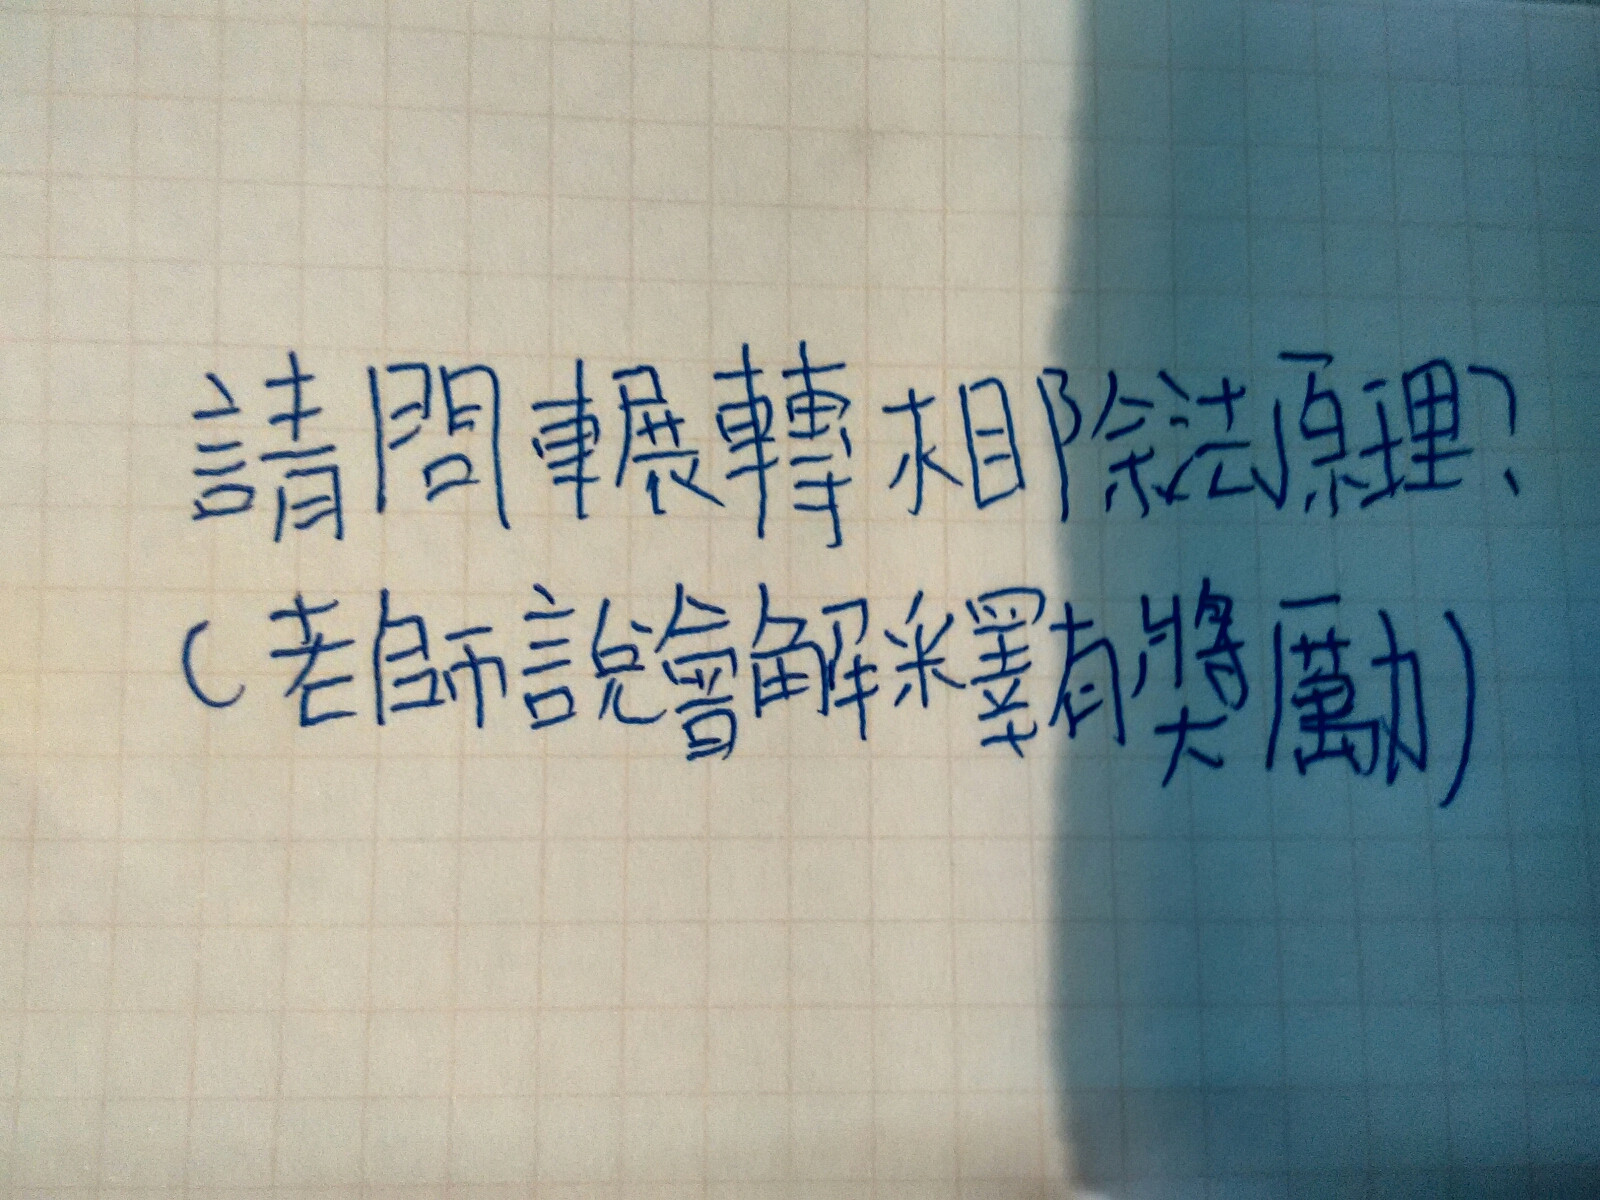 請問輾轉相除法原理?
(老師說會解釋有獎勵)